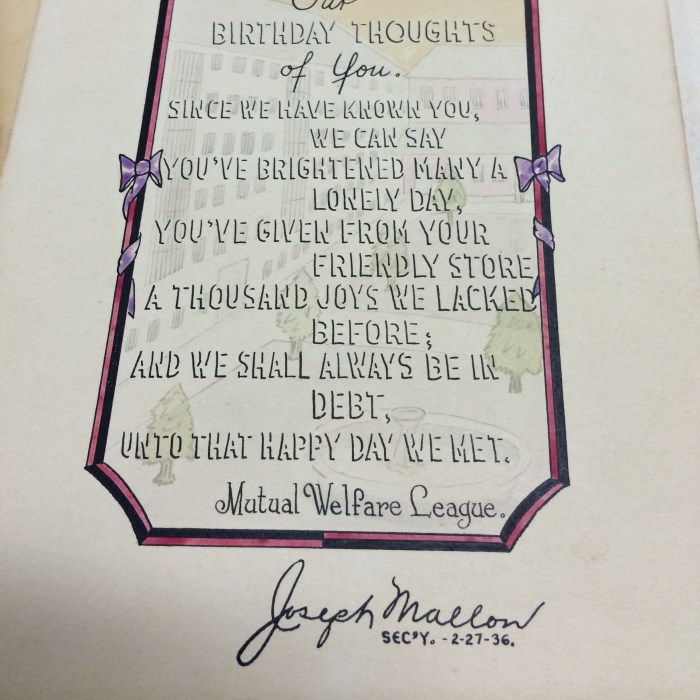 Our
BIRTHDAY THOUGHTS
of You.
SINCE WE HAVE KNOWN YOU,
WE CAN SAY
YOU'VE BRIGHTENED MANY A
LONELY DAY,
YOU'VE GIVEN FROM YOUR
FRIENDLY STORE
A THOUSAND JOYS WE LACKED
BEFORE;
AND WE SHALL ALWAYS BE IN
DEBT,
UNTO THAT HAPPY DAY WE MET.
Mutual Welfare League.
Joseph Mallon
SEC'Y. -2-27-36.